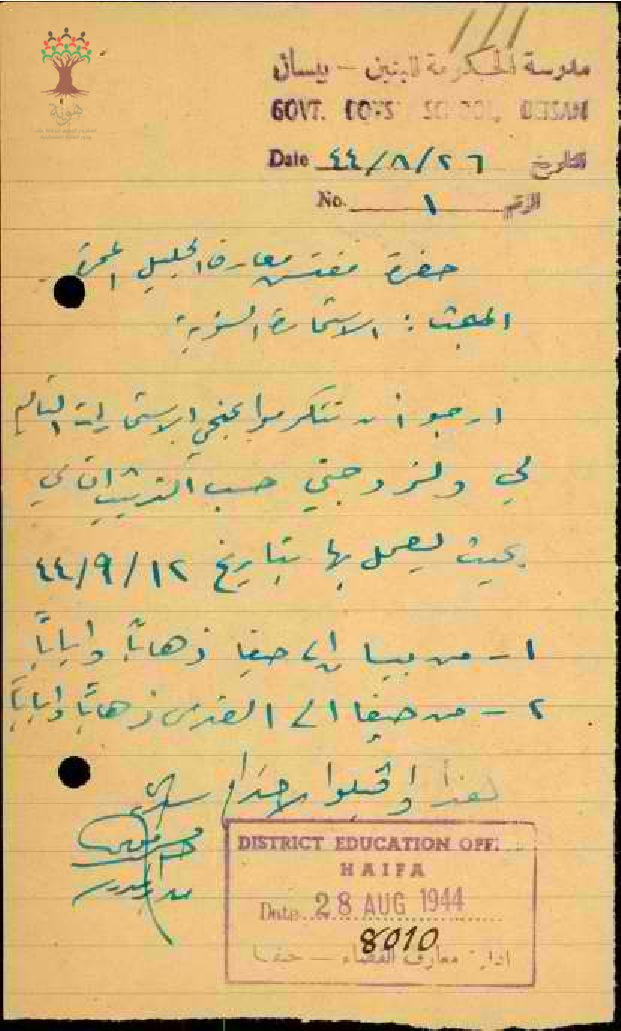 مدرسة الحكومة للبنين – بيسان
GOVT. BOYS' SCHOOL, BEISAN
التاريخ ٤٤/٨/٢٦ Date
الرقم ١ No.
هوية
حضرة مفتش معارف الجليل المحترم
المبحث : الاستمارة السنوية
ارجو أن تتكرموا بمنحي الاستمارات التالية
لي ولزوجتي حسب الترتيب الآتي
بحيث يعمل بها بتاريخ ٤٤/٩/١٢
١ – من بيسان إلى حيفا ذهابًا وايابًا
٢ – من حيفا الى القدس ذهابًا وايابًا
هذا واقبلوا الاحترام
مدير المدرسة
DISTRICT EDUCATION OFF.
HAIFA
Date 28 AUG 1944
8010
ادارة معارف القضاء – حيفا